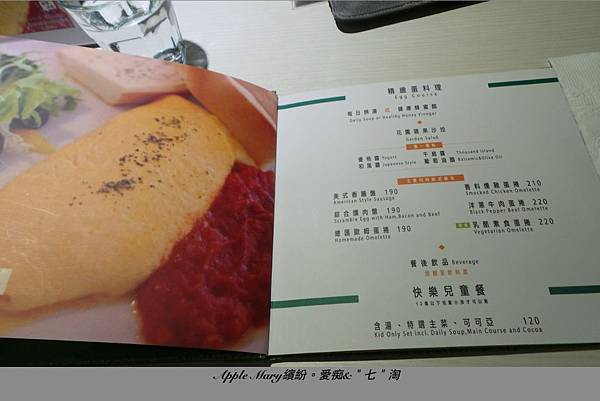 精緻蛋料理
Egg Course
每日例湯 或 健康蜂蜜醋
Daily Soup or Healthy Honey Vinegar
花園蔬果沙拉
Garden Salad
優格醬 Yogurt 千島醬 Thousand Island
和風醬 Japanese Style 葡萄油醋 Balsamic&Olive Oil
美式香腸盤 190
American Style Sausage
香料燻雞蛋捲 210
Smocked Chicken Omelette
綜合燻肉盤 190
Scramble Egg with Ham,Bacon and Beef
洋蔥牛肉蛋捲 220
Black Pepper Beef Omelette
德國歐姆蛋捲 190
Homemade Omelette
乳酪素食蛋捲 220
Vegetarian Omelette
餐後飲品 Beverage
快樂兒童餐
含湯、特選主菜、可可亞 120
Kid Only Set incl. Daily Soup,Main Course and Cocoa
Apple Mary繽紛。愛痴&"七"淘